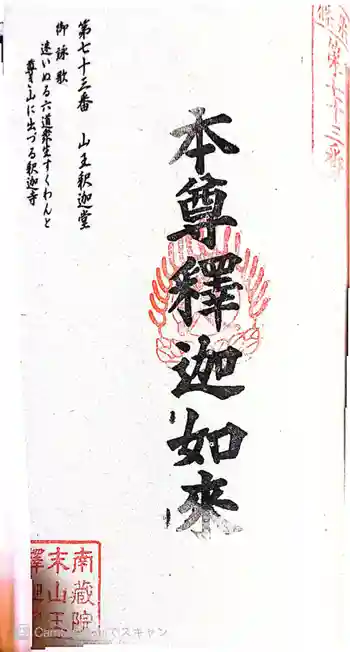 第七十三番
本尊釋迦如來
第七十三番 山王釈迦堂
御詠歌
迷いぬる六道衆生すくわんと
尊き山に出づる釈迦寺
南藏院
末山王
釋迦
CamScannerでスキャン